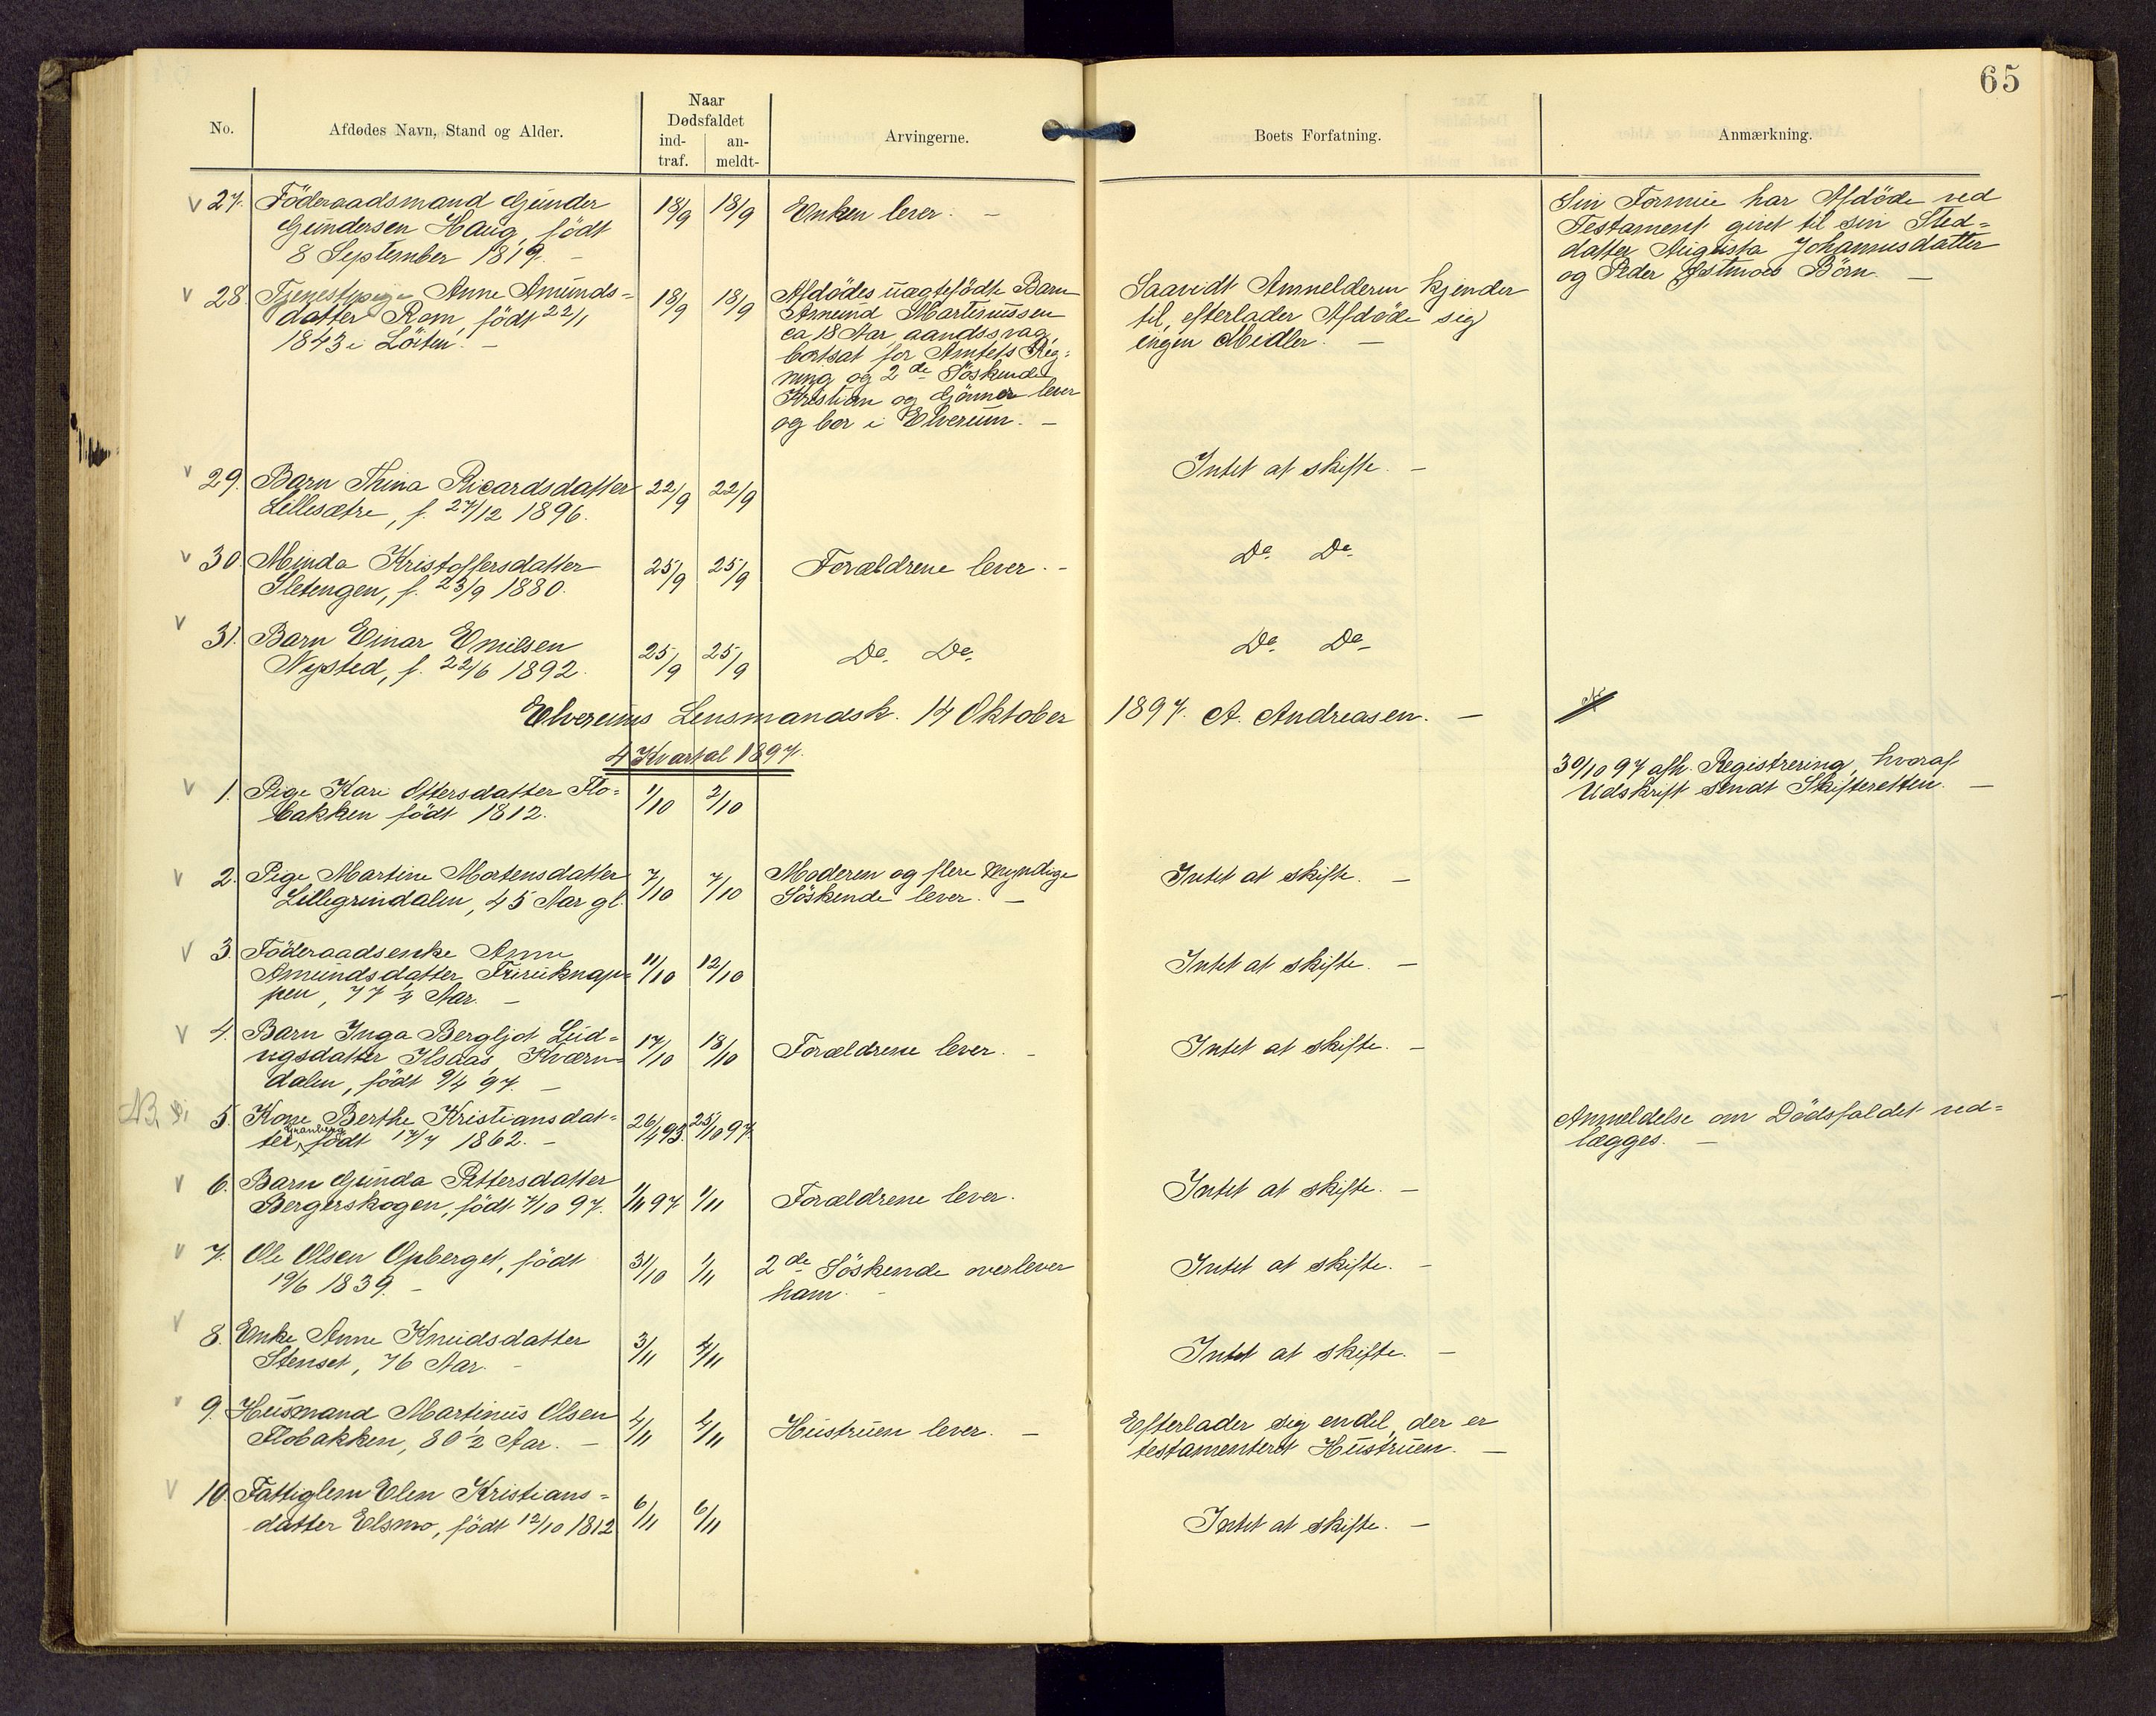 65
No.
Afdødes Navn, Stand og Alder.
Naar
Dødsfaldet
ind-
traf.
an-
meldt-
Arvingerne.
Boets Forfatning.
Anmærkning.
27. Föderaadsmand Gunder
Gundersen Haug, född
8 September 1819. -
18/9 18/9
Enken lever. -
Sin Formue har Afdöde ved
Testament givet til sin Sted=
datter Augusta Johannesdatter
og Peder Börn. -
28. Tjenestepige Anne Amunds=
datter Rom, födt 22/1
1843 i Löiten. -
18/9 18/9
Afdödes uægtefödte Barn
Amund Martinussen
ca 18 Aar, aandssvag,
bortsat for Amtets Reg=
ning og 2de Söskende
Kristian og Gunner lever
og bor i Elverum. -
Saavidt Anmelderen kjender
til, efterlader Afdöde sig
ingen Midler. -
29. Barn Thina Ricardsdatter
Lillesætre, f. 27/12 1896.
22/9 22/9
Intet at skifte. -
30. Minda Kristoffersdatter
Sletengen, f. 23/9 1880.
25/9 25/9
Forældrene lever. -
Do. Do.
31. Barn Einar Emilsen
Nysted, f. 22/6 1892.
25/9 25/9
Do. Do.
Do. Do.
Elverums Lensmandsk. 14 Oktober 1897. A. Andreasen. -
4 Kvartal 1897.
1. Pige Kari Ottersdatter Flo=
bakken födt 1812.
1/10 2/10
30/10 97 afh. Registrering, hvoraf
Udskrift sendt Skifteretten. -
2. Pige Martine Mortensdatter
Lillegrindalen, 45 Aar gl.
7/10 7/10
Moderen og flere myndige
Söskende lever. -
Intet at skifte. -
3. Föderaadsenke Anne
Amundsdatter Fururknap=
pen, 77 1/2 Aar. -
11/10 12/10
Intet at skifte. -
4. Barn Inga Bergljot Lud=
vigsdatter Ilsaas Kværn=
dalen, födt 9/4 97. -
17/10 18/10
Forældrene lever. -
Intet at skifte. -
NB
5. Kone Berthe Kristiansdat=
ter Granberg, födt 17/7 1862. -
26/4 93. 25/10 97.
Anmeldelse om Dödsfaldet ved=
lægges. -
6. Barn Gunda Pettersdatter
Bergerskogen, födt 7/10 97.
1/11 97 1/11
Forældrene lever.
Intet at skifte. -
7. Ole Olsen Opberget, födt
19/6 1839. -
31/10 1/11
2de Söskende overlever
ham. -
Intet at skifte. -
8. Enke Anne Knudsdatter
Stenset, 76 Aar. -
3/11 4/11
Intet at skifte. -
9. Husmand Martinus Olsen
Flobakken, 80 1/2 Aar. -
4/11 4/11
Hustruen lever. -
Efterlader sig endel, der er
testamenteret Hustruen. -
10. Fattiglem Elen Kristians=
datter Elsmo, födt 12/10 1812
6/11 6/11
Intet at skifte. -